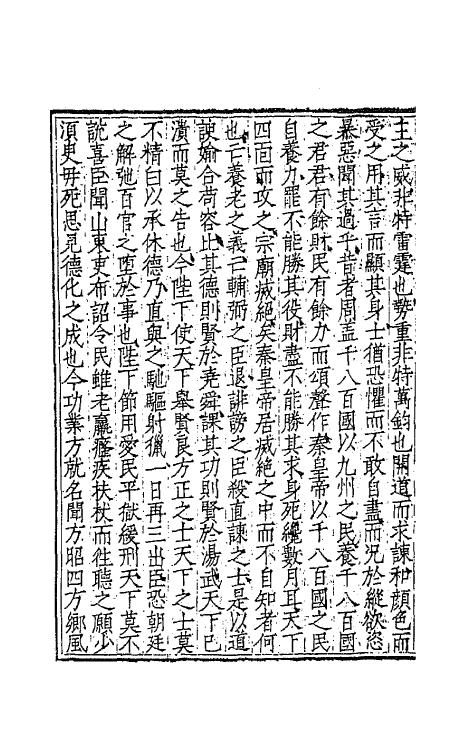 主之威非特雷霆也勢重非特萬鈞也開道而求諫和顔色而
受之用其言而顯其身士猶恐懼而不敢自盡而况於縱欲恣
暴惡聞其過乎昔者周盖千八百國以九州之民養千八百國
之君君有餘財民有餘力而頌聲作秦皇帝以千八百國之民
自養力罷不能勝其役財盡不能勝其求身死纔數月耳天下
四面而攻之宗廟滅絶矣秦皇帝居滅絶之中而不自知者何
也亡養老之義亡輔弼之臣退誹謗之臣殺直諫之士是以道
諛媮合苟容比其德則賢於堯舜課其功則賢於湯武天下已
潰而莫之告也今陛下使天下舉賢良方正之士天下之士莫
不精白以承休德乃直與之馳驅射獵一日再三出臣恐朝廷
之解弛百官之堕於事也陛下節用愛民平獄緩刑天下莫不
説喜臣聞山東吏布詔令民雖老羸癃疾扶杖而徃聽之願少
湏史毋死思見德化之成也今功業方就名聞方昭四方鄉風